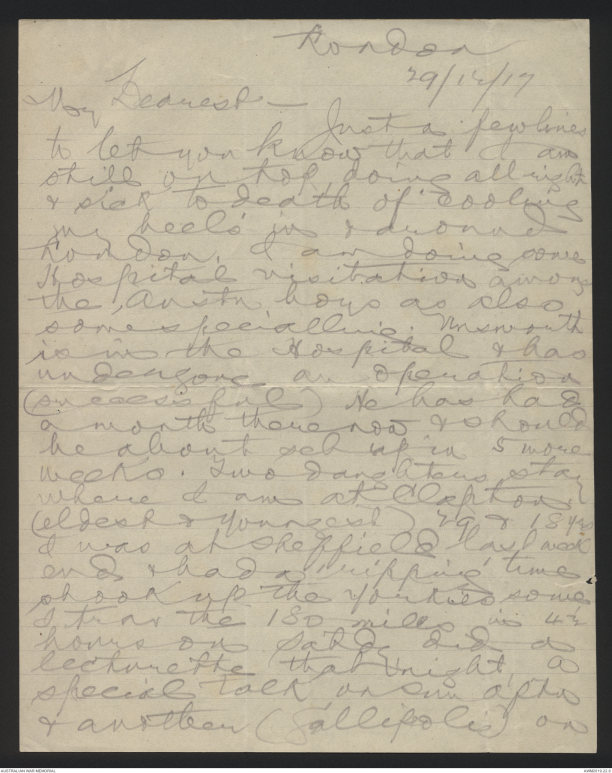 London
29/12/17
My Dearest —
Just a few lines
to let you know that I am
still on top doing all right
& sick to death of cooling
my heels in & around
London. I am doing some
Hospital visitation among
the Austn boys as also
some specialling. Unsworth
is in the Hospital & has
undergone an operation
(successful) He has had
a month there now & should
be about set up in 5 more
weeks. Two daughters stay
where I am at Clapton
(eldest & youngest) 29 & 18 yrs
I was at Sheffield last week
end & had a 'ripping' time
shook up the Yorkies some
I trav the 180 miles in 4½
hours on Satdy did a
lecturette that night, a
special talk on Sun aftn
& another (Gallipolis) on
AUSTRALIAN WAR MEMORIAL